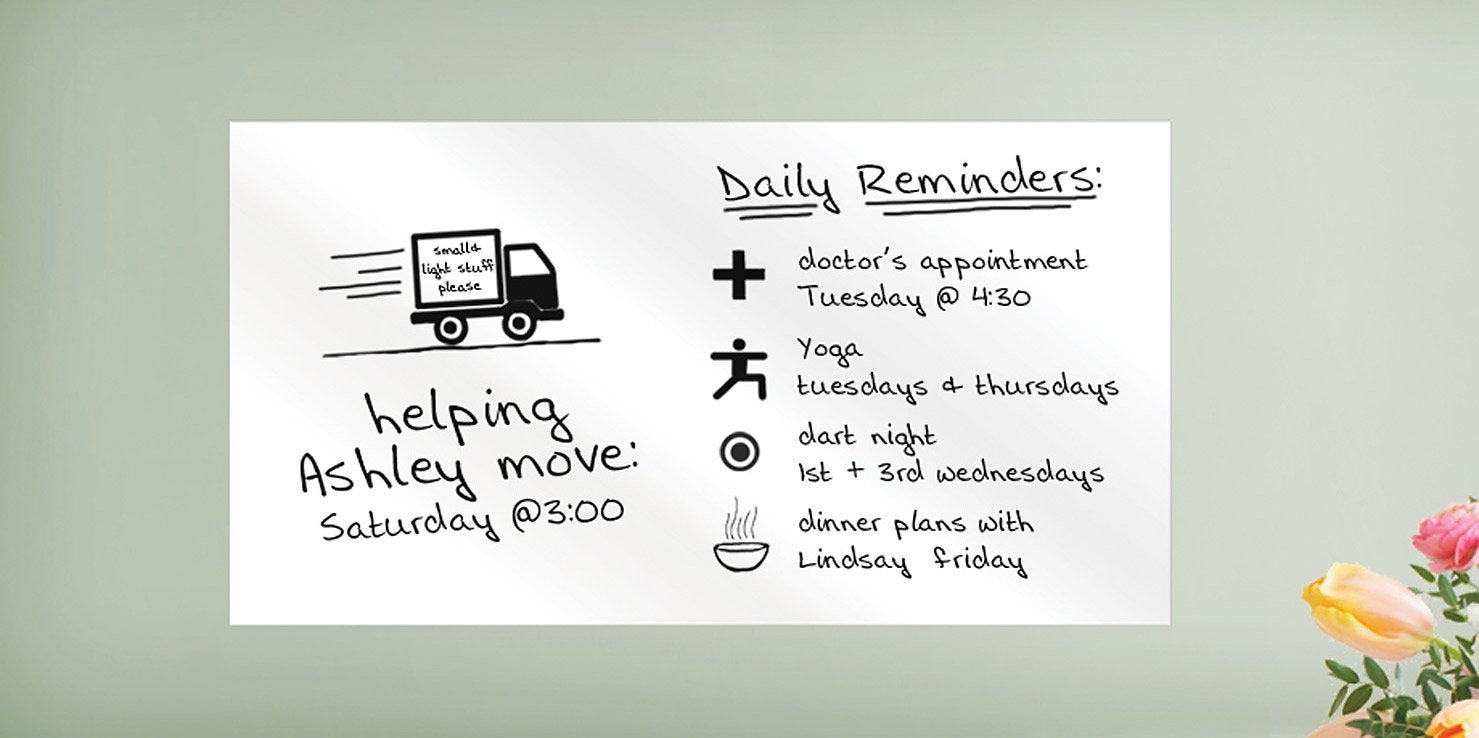 small &
light stuff
please
helping
Ashley move:
Saturday @3:00
Daily Reminders:
doctor's appointment
Tuesday @ 4:30
Yoga
tuesdays & thursdays
dart night
1st + 3rd wednesdays
dinner plans with
Lindsay friday